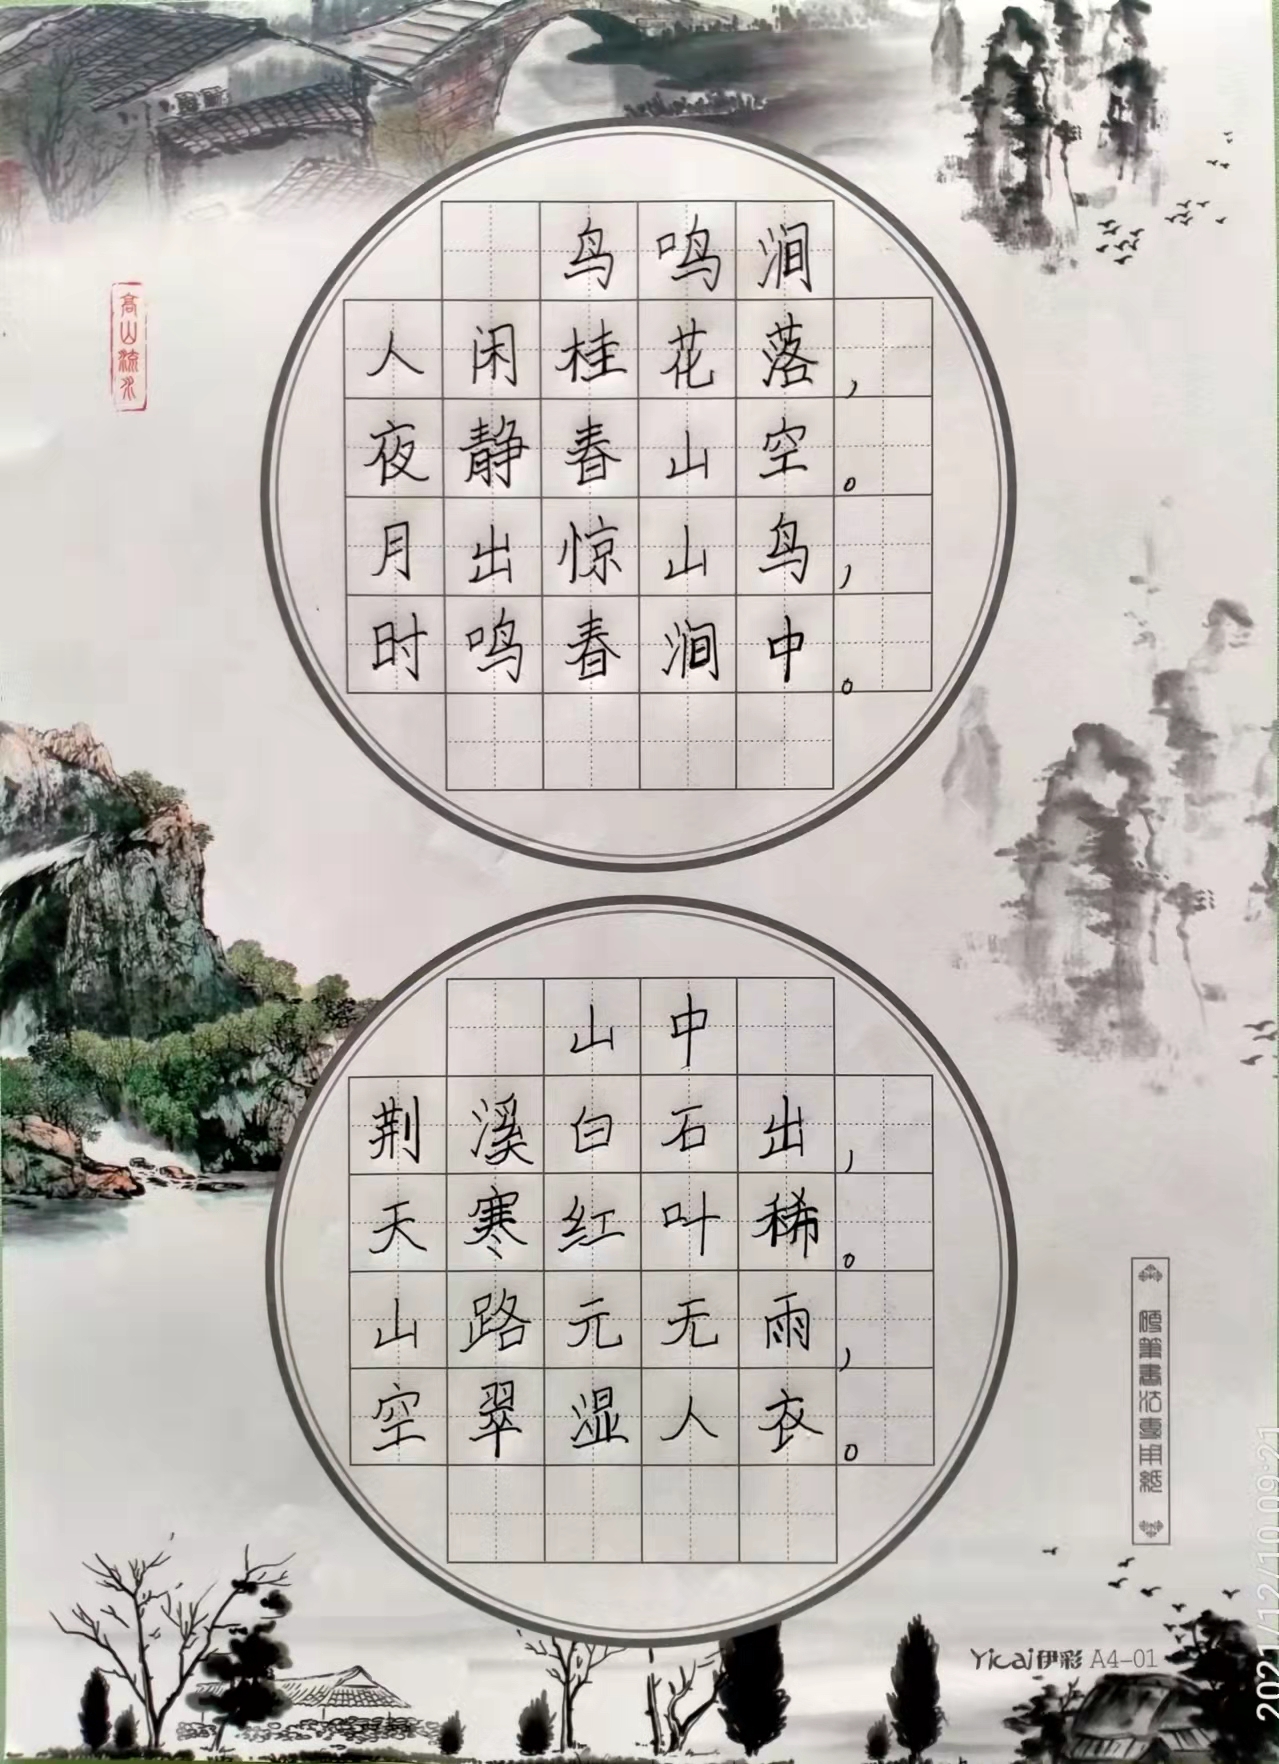 鸟鸣涧
人闲桂花落，
夜静春山空。
月出惊山鸟，
时鸣春涧中。
山中
荆溪白石出，
天寒红叶稀。
山路元无雨，
空翠湿人衣。
高山流水
硬笔书法专用纸
Yicai伊彩 A4-01
2021/12/10 09:21